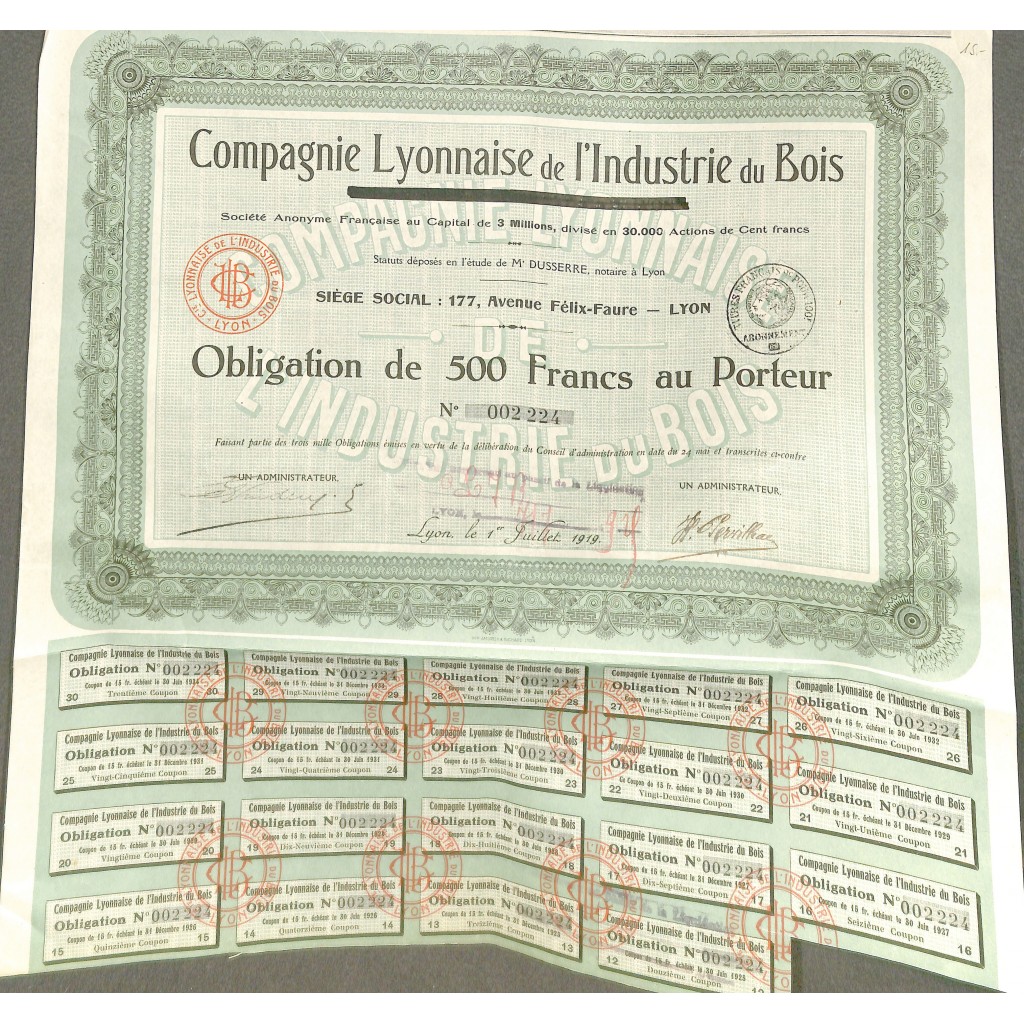 15.-
Compagnie Lyonnaise de l'Industrie du Bois
Société Anonyme Française au Capital de 3 Millions, divisé en 30.000 Actions de Cent francs
Statuts déposés en l'étude de Mᵉ DUSSERRE, notaire à Lyon
SIÈGE SOCIAL : 177, Avenue Félix-Faure — LYON
Cⁱᵉ LYONNAISE DE L'INDUSTRIE DU BOIS
LYON
TITRES FRANÇAIS
ABONNEMENT
COMPAGNIE LYONNAISE
DE
L'INDUSTRIE DU BOIS
Obligation de 500 Francs au Porteur
N° 002 224
Faisant partie des trois mille Obligations émises en vertu de la délibération du Conseil d'administration en date du 24 mai et transcrites ci-contre
UN ADMINISTRATEUR.
UN ADMINISTRATEUR.
de la Liquidation
LYON, le
Lyon, le 1ᵉʳ Juillet 1919.
Compagnie Lyonnaise de l'Industrie du Bois
Obligation N° 002 224
Coupon de 15 fr. échéant le 30 Juin 1934
30 Trentième Coupon 30
Compagnie Lyonnaise de l'Industrie du Bois
Obligation N° 002 224
Coupon de 15 fr. échéant le 31 Décembre 1933
29 Vingt-Neuvième Coupon 29
Compagnie Lyonnaise de l'Industrie du Bois
Obligation N° 002 224
Coupon de 15 fr. échéant le 30 Juin 1933
28 Vingt-Huitième Coupon 28
Compagnie Lyonnaise de l'Industrie du Bois
Obligation N° 002 224
Coupon de 15 fr. échéant le 31 Décembre 1932
27 Vingt-Septième Coupon 27
Compagnie Lyonnaise de l'Industrie du Bois
Obligation N° 002 224
Coupon de 15 fr. échéant le 30 Juin 1932
26 Vingt-Sixième Coupon 26
Compagnie Lyonnaise de l'Industrie du Bois
Obligation N° 002 224
Coupon de 15 fr. échéant le 31 Décembre 1931
25 Vingt-Cinquième Coupon 25
Compagnie Lyonnaise de l'Industrie du Bois
Obligation N° 002 224
Coupon de 15 fr. échéant le 30 Juin 1931
24 Vingt-Quatrième Coupon 24
Compagnie Lyonnaise de l'Industrie du Bois
Obligation N° 002 224
Coupon de 15 fr. échéant le 31 Décembre 1930
23 Vingt-Troisième Coupon 23
Compagnie Lyonnaise de l'Industrie du Bois
Obligation N° 002 224
Coupon de 15 fr. échéant le 30 Juin 1930
22 Vingt-Deuxième Coupon 22
Compagnie Lyonnaise de l'Industrie du Bois
Obligation N° 002 224
Coupon de 15 fr. échéant le 31 Décembre 1929
21 Vingt-Unième Coupon 21
Compagnie Lyonnaise de l'Industrie du Bois
Obligation N° 002 224
Coupon de 15 fr. échéant le 30 Juin 1929
20 Vingtième Coupon 20
Compagnie Lyonnaise de l'Industrie du Bois
Obligation N° 002 224
Coupon de 15 fr. échéant le 31 Décembre 1928
19 Dix-Neuvième Coupon 19
Compagnie Lyonnaise de l'Industrie du Bois
Obligation N° 002 224
Coupon de 15 fr. échéant le 30 Juin 1928
18 Dix-Huitième Coupon 18
Compagnie Lyonnaise de l'Industrie du Bois
Obligation N° 002 224
Coupon de 15 fr. échéant le 31 Décembre 1927
17 Dix-Septième Coupon 17
Compagnie Lyonnaise de l'Industrie du Bois
Obligation N° 002 224
Coupon de 15 fr. échéant le 30 Juin 1927
16 Seizième Coupon 16
Compagnie Lyonnaise de l'Industrie du Bois
Obligation N° 002 224
Coupon de 15 fr. échéant le 31 Décembre 1926
15 Quinzième Coupon 15
Compagnie Lyonnaise de l'Industrie du Bois
Obligation N° 002 224
Coupon de 15 fr. échéant le 30 Juin 1926
14 Quatorzième Coupon 14
Compagnie Lyonnaise de l'Industrie du Bois
Obligation N° 002 224
Coupon de 15 fr. échéant le 31 Décembre 1925
13 Treizième Coupon 13
Compagnie Lyonnaise de l'Industrie du Bois
Obligation N° 002 224
Coupon de 15 fr. échéant le 30 Juin 1925
12 Douzième Coupon 12